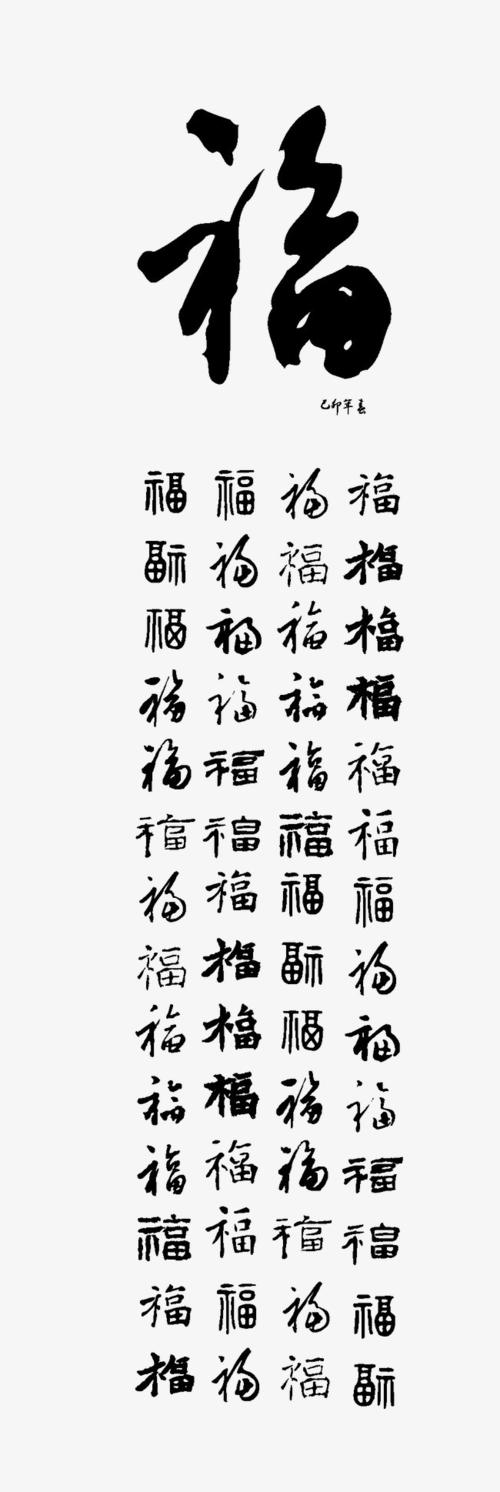 福
己卯年春
福福福福
福福福福
福福福福
福福福福
福福福福
福福福福
福福福福
福福福福
福福福福
福福福福
福福福福
福福福福
福福福福
福福福福